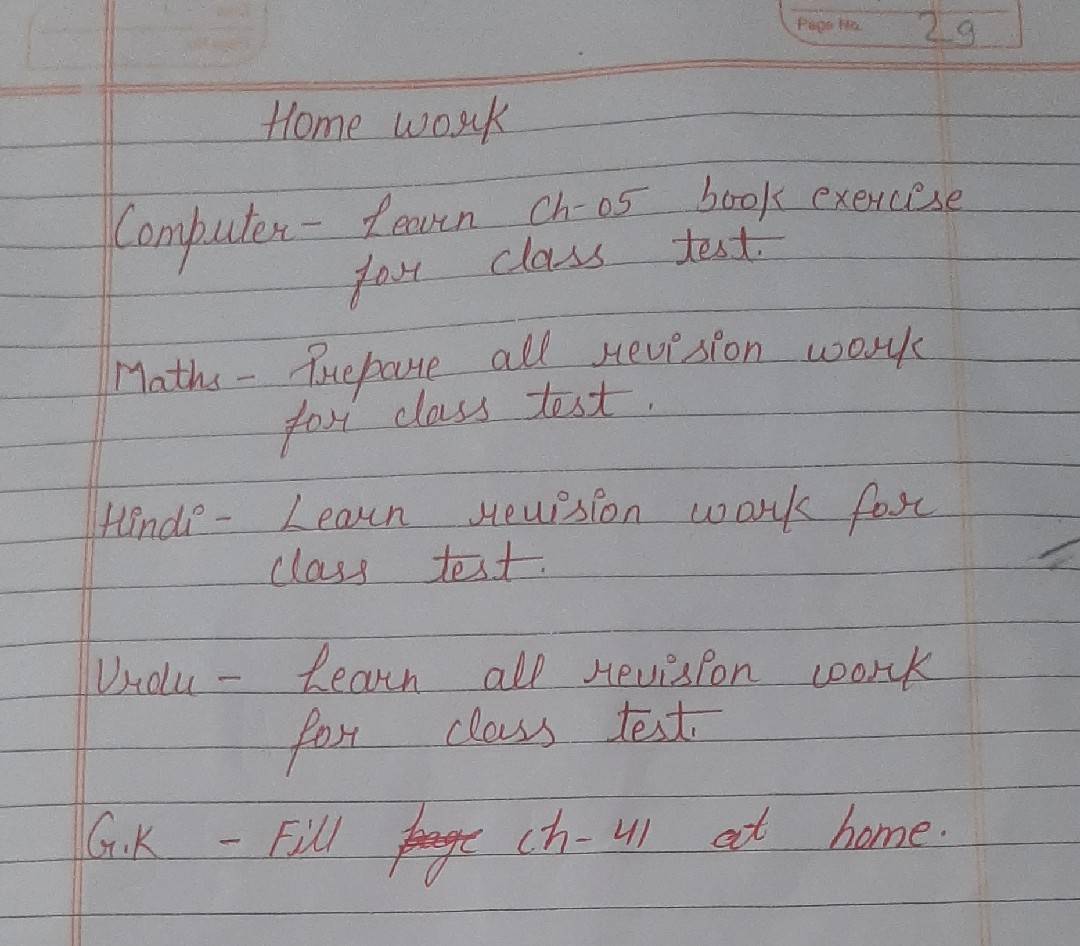 Page No. 29
Home work
Computer - Learn Ch-05 book exercise
for class test.
Maths - Prepare all revision work
for class test.
Hindi - Learn revision work for
class test.
Urdu - Learn all revision work
for class test.
G.K - Fill page ch-41 at home.